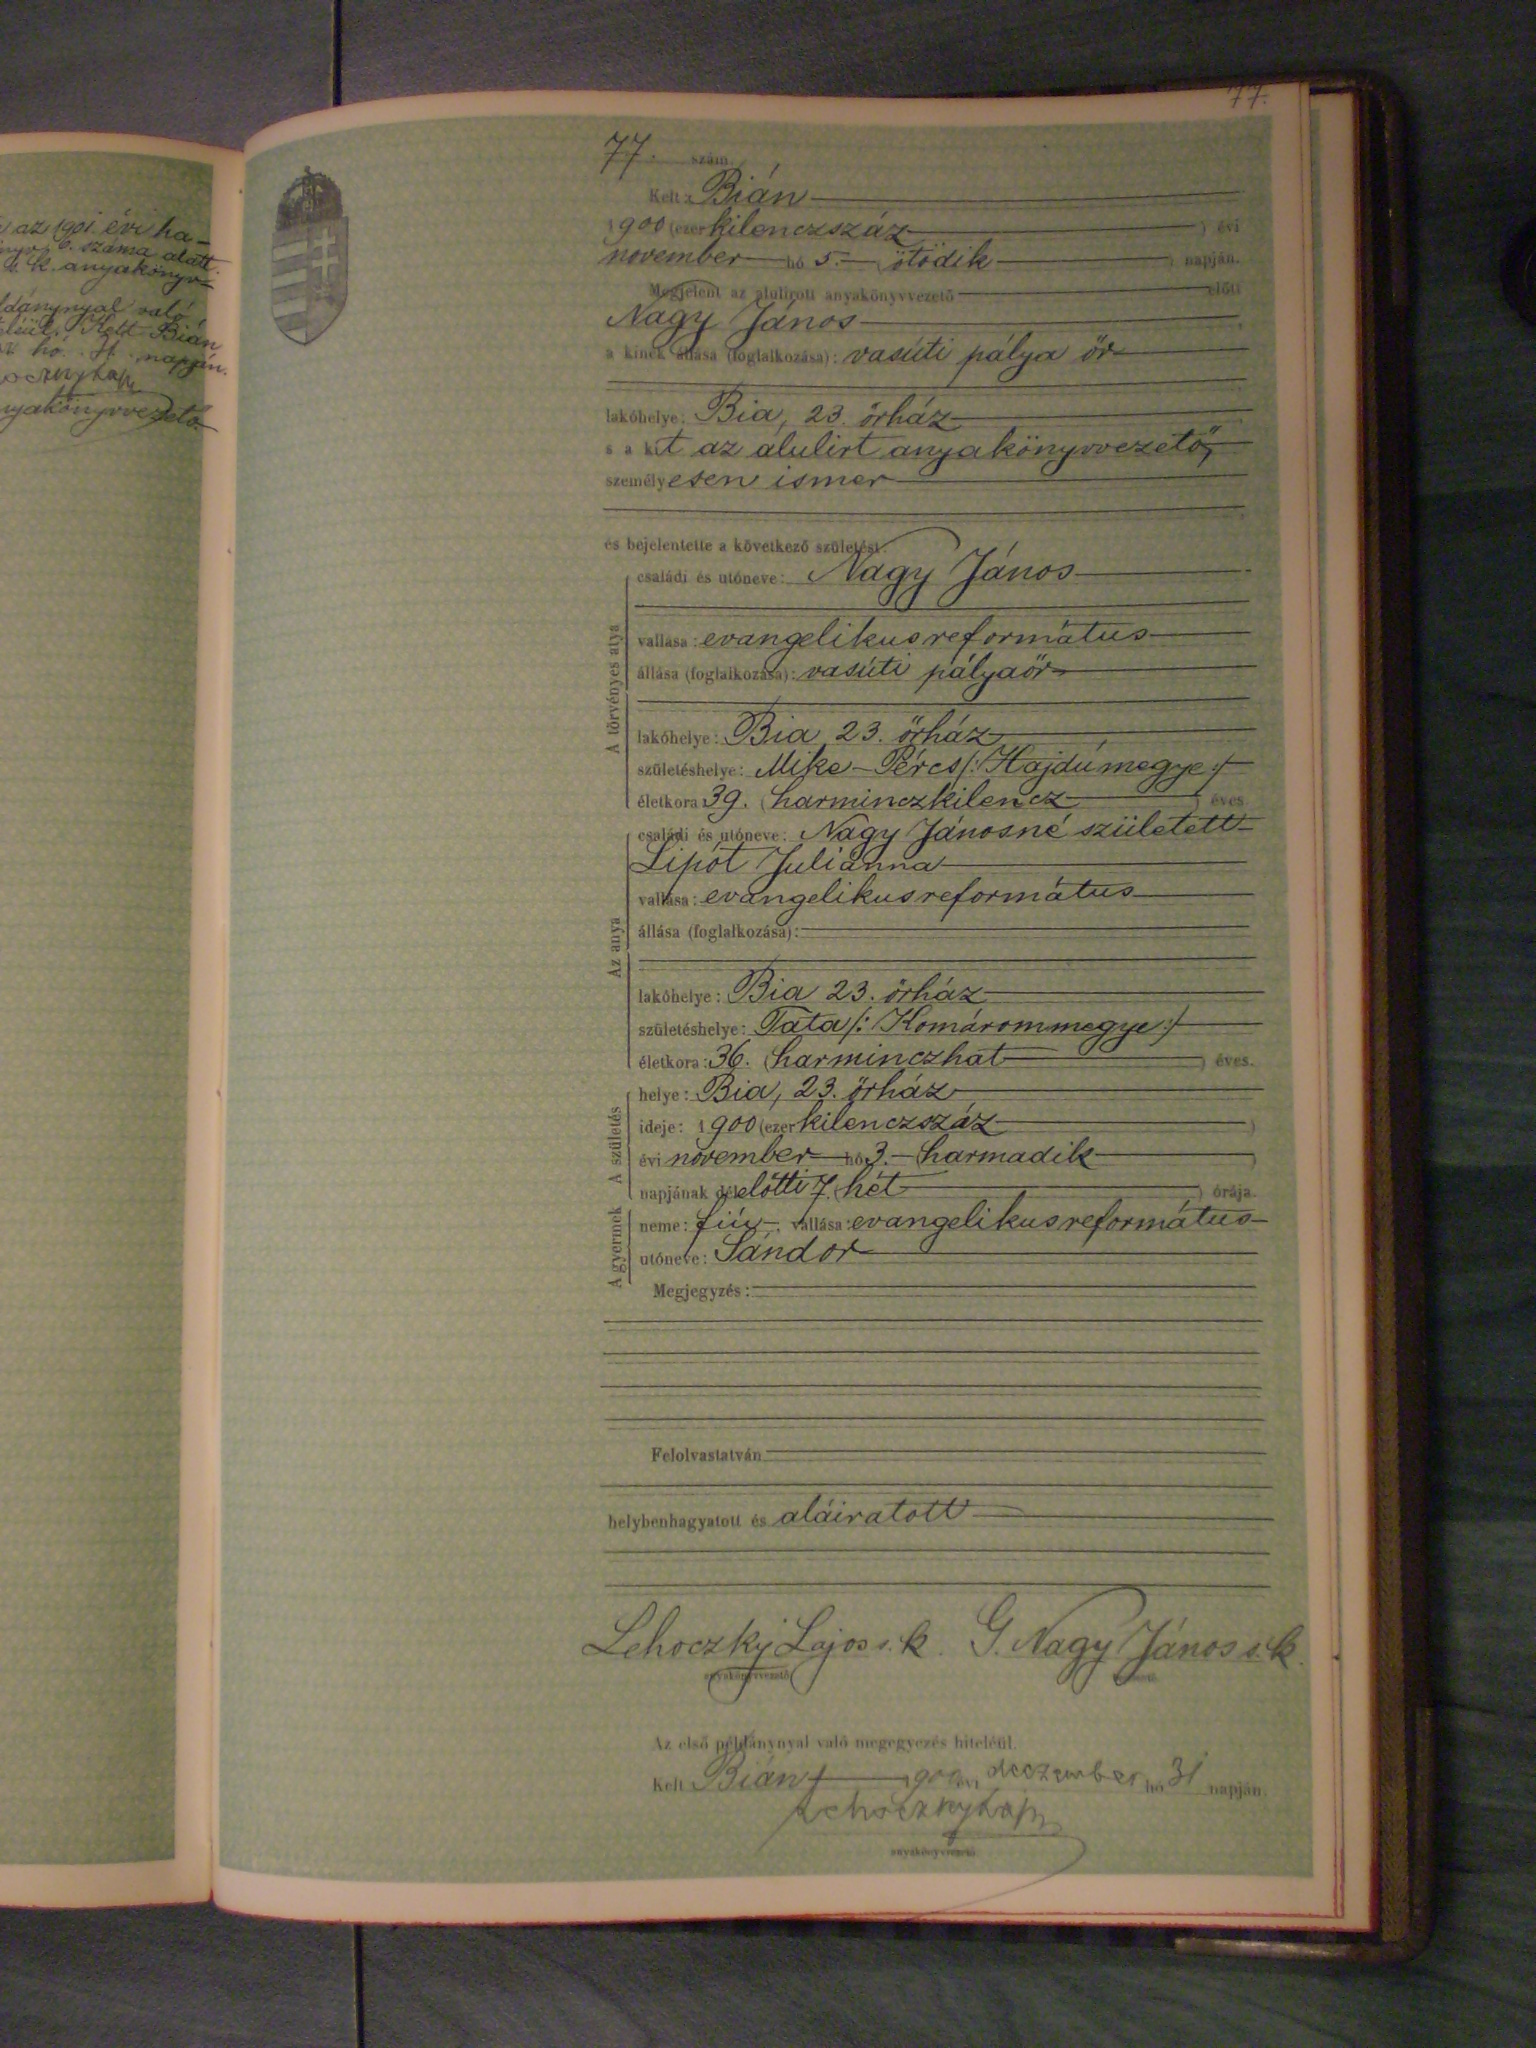 az 1901. évi ha-
6. száma alatt.
k. anyakönyv-
való
Kelt Bián
hó napján.
77.
77. szám.
Kelt: Bián
1900 (ezer kilenczszáz) évi
november hó 5. (ötödik) napján.
Megjelent az alulirott anyakönyvvezető előtt
Nagy János
a kinek állása (foglalkozása): vasúti pálya őr
lakóhelye: Bia, 23. őrház
s a kit az alulirt anyakönyvvezető,
személyesen ismer
és bejelentette a következő születést:
A törvényes atya
családi és utóneve: Nagy János
vallása: evangelikus református
állása (foglalkozása): vasúti pályaőr
lakóhelye: Bia 23. őrház
születéshelye: Mike-Pércs /: Hajdúmegye :/
életkora: 39. (harminczkilencz) éves.
Az anya
családi és utóneve: Nagy Jánosné született
Lipót Juliánna
vallása: evangelikus református
állása (foglalkozása):
lakóhelye: Bia 23. őrház
születéshelye: Tata /: Komárommegye :/
életkora: 36. (harminczhat) éves.
A születés
helye: Bia, 23. őrház
ideje: 1900 (ezer kilenczszáz)
évi november hó 3. (harmadik)
napjának délelőtti 7. (hét) órája.
A gyermek
neme: fiú, vallása: evangelikus református
utóneve: Sándor
Megjegyzés:
Felolvastatván
helybenhagyatott és aláiratott
Lehoczky Lajos s. k. G. Nagy János s. k.
anyakönyvvezető
Az első példánynyal való megegyezés hiteléül.
Kelt Bián 1900 évi deczember hó 31 napján.
Lehoczky Lajos
anyakönyvvezető